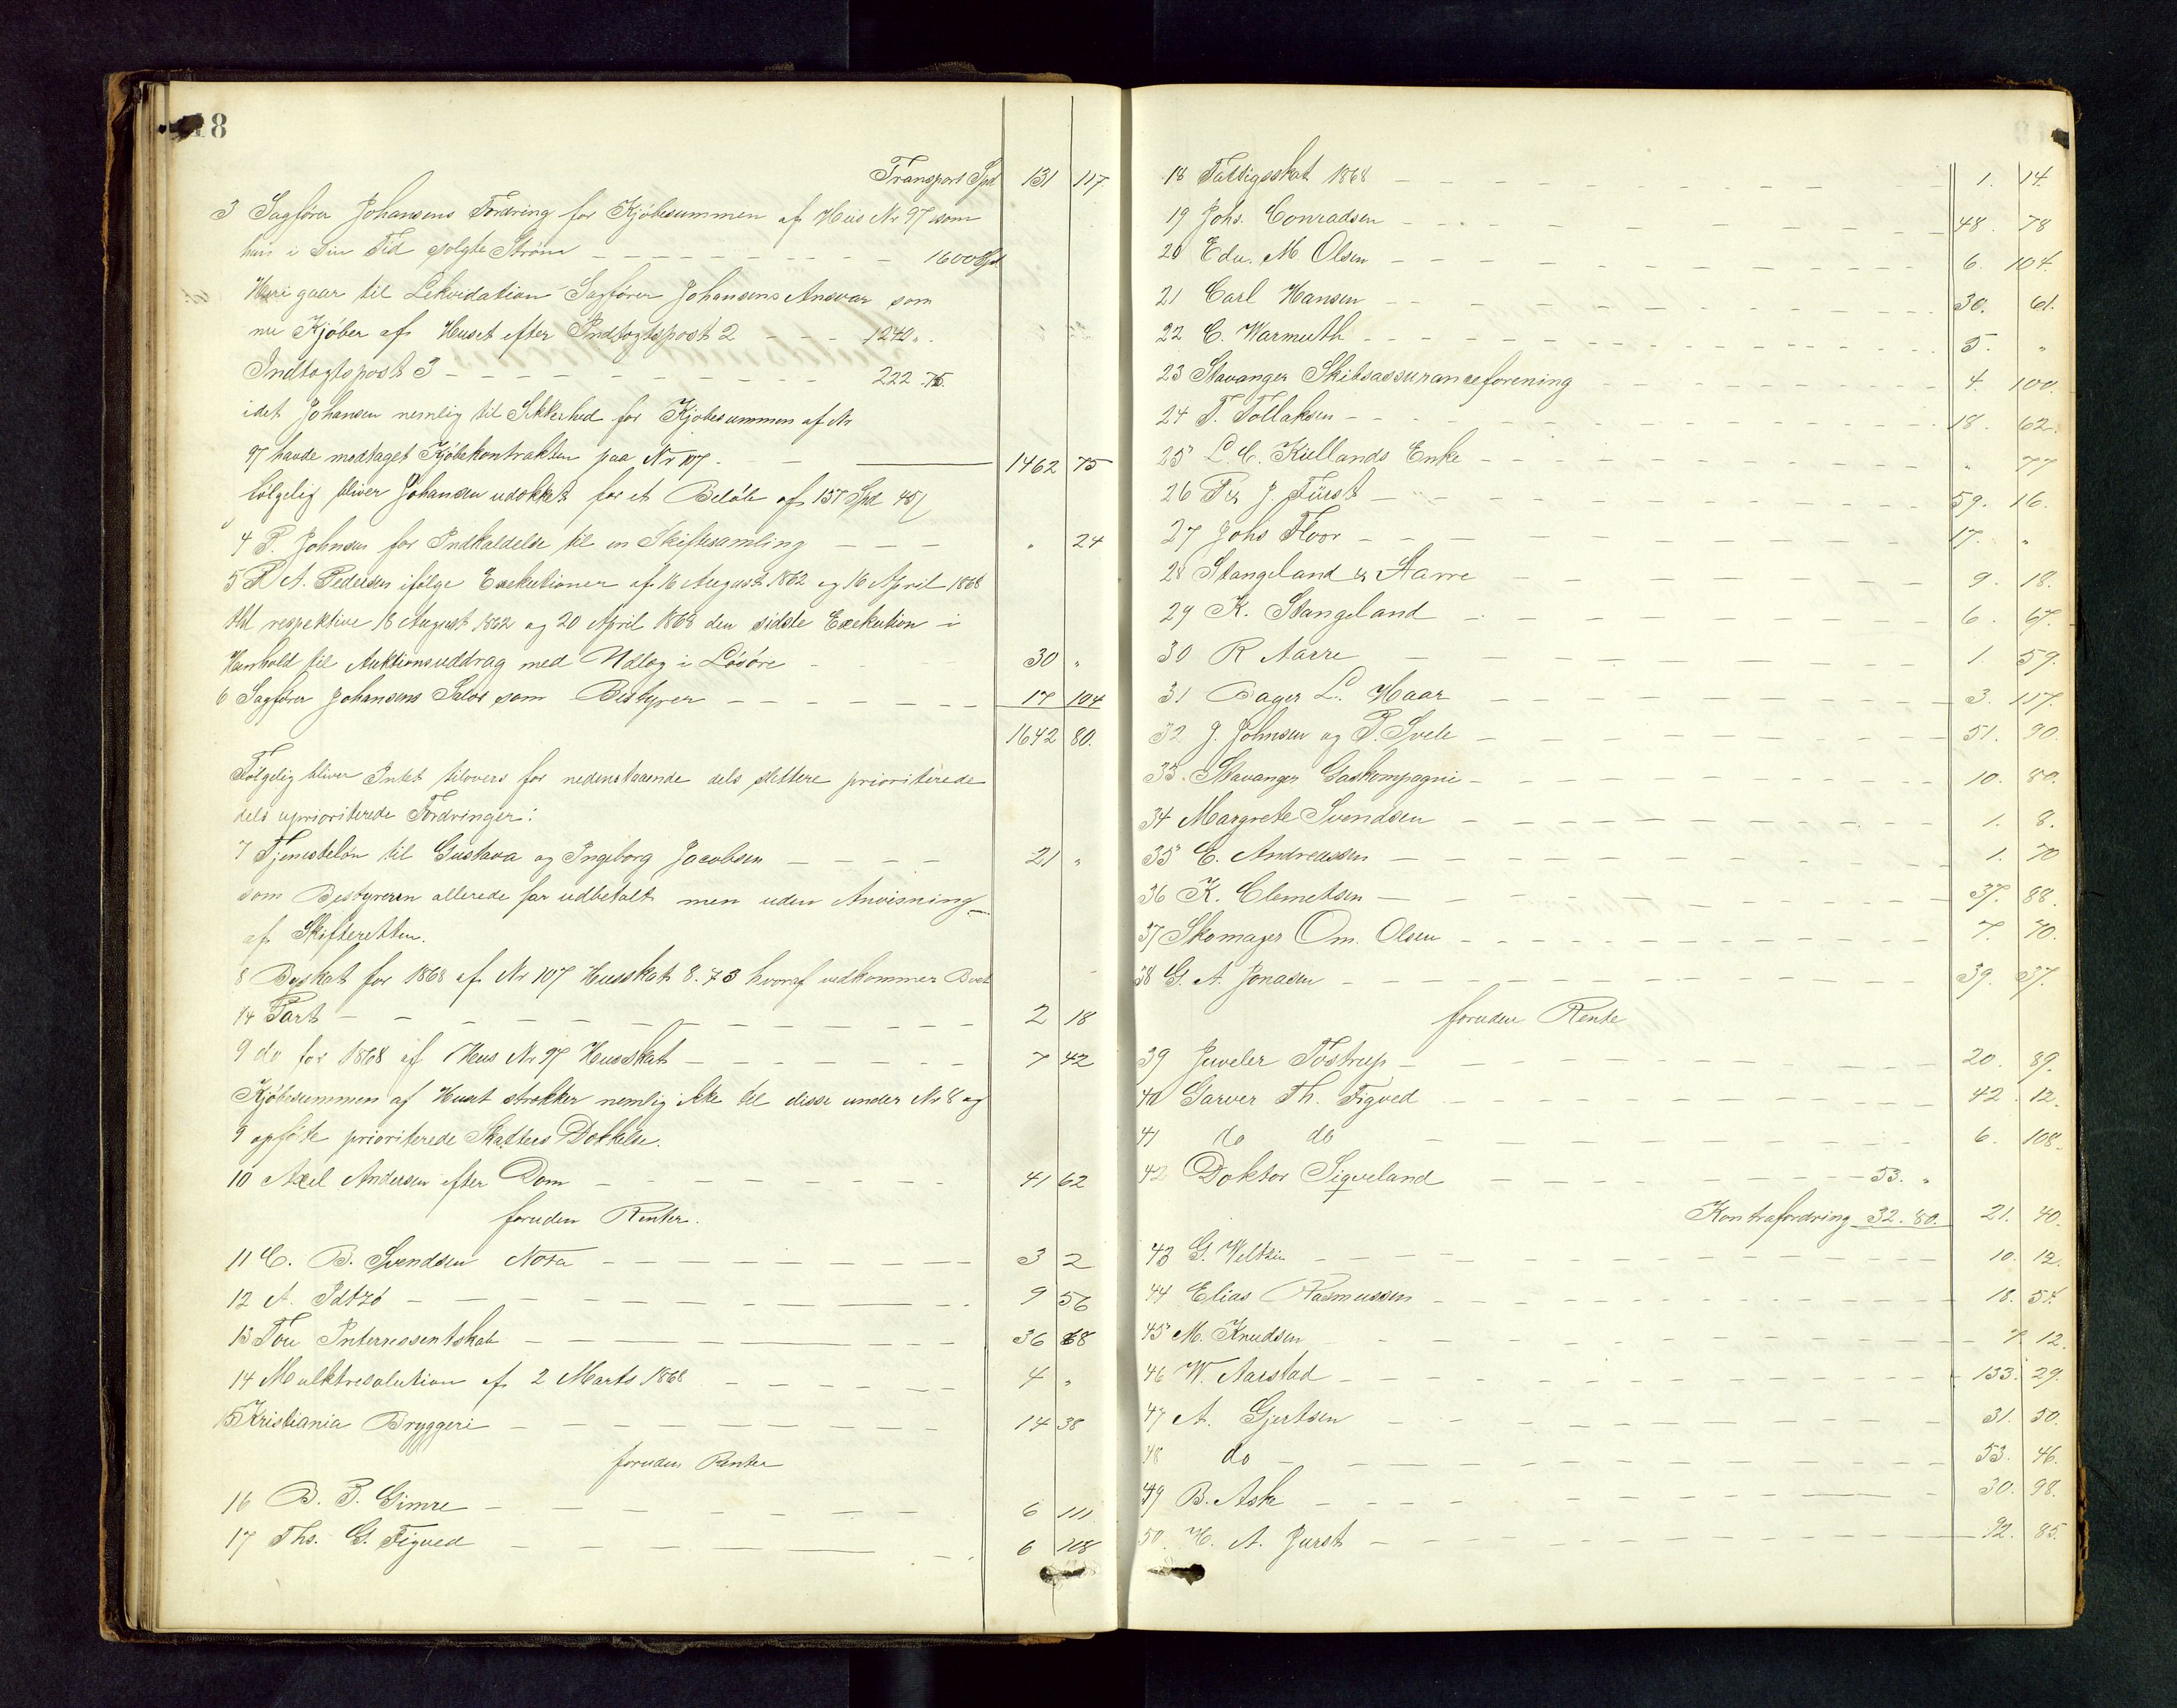 118
Transport Spd 131 117.
3 Sagfører Johansens Fordring for Kjøbesummen af Hus Nr 97 som
han i sin Tid solgte Strøm 1600 Spd
Heri gaar til Lekvidation Sagfører Johansens Ansvar som
nu Kjøber af Huset efter Indtægtspost 2 - - - 1240 „.
Indtægtspost 3 - - - 222.75.
idet Johansen nemlig til Sikkerhed for Kjøbesummen af Nr
97 havde modtaget Kjøbekontrakten paa Nr 107. - 1462 75
følgelig bliver Johansen udækket for et Beløb af 137 Spd 45 /
4 P. Johnsen for Indkaldelse til en Skiftesamling - - - „ 24
5 P. A. Pedersen ifølge Exekutioner af 16 August 1862 og 16 April 1868
thl respektive 18 August 1862 og 20 April 1868 den sidste Exekution i
Henhold til Auktionsuddrag med Udlæg i Løsøre - 30 „
6 Sagfører Johansens Salær som Bestyrer - - - 17 104
1642 80.
Følgelig bliver Intet tilovers for nedenstaaende dels slettere prioriterede
dels uprioriterede Fordringer:
7 Tjenesteløn til Gustava og Ingeborg Jacobsen - - - 21 „
som Bestyreren allerede har udbetalt men uden Anvisning
af Skifteretten.
8 Byskat for 1868 af Nr 107 Husskat 8.73 hvoraf vedkommer Boet
1/4 Part - - - 2 18
9 do for 1868 af Hus Nr 97 Husskat - - - 7 42
Kjøbesummen af Huset strækker nemlig ikke til disse under Nr 8 og
9 opførte prioriterede Skatters Dækkelse.
10 Axel Andersen efter Dom - - - 41 62
foruden Renter.
11 C. B. Svendsen Nota - - - 3 2
12 A. Idtzø - - - 9 56
13 Tou Interressentskab - - - 36 68
14 Mulktresolution af 2 Marts 1868 - - - 4 „
15 Kristiania Bryggeri - - - 14 38
foruden Renter
16 B. P. Gimre - - - 6 111.
17 Ths. G. Figved - - - 6 108
18 Fattigskat 1868 - - - 1. 14.
19 Johs. Conradsen - - - 48. 78
20 Edv. M Olsen - - - 6. 104.
21 Carl Hansen - - - 30. 61.
22 C. Warmuth - - - 5. „
23 Stavanger Skibsassuranceforening - - - 4. 100.
24 T. Tollaksen - - - 18. 62.
25 L. C. Kiellands Enke - - - „ 77
26 P & J. Fürst - - - 59. 16.
27 Johs Floor - - - 17. „
28 Stangeland & Aarre - - - 9. 18.
29 K. Stangeland - - - 6. 67.
30 R Aarre - - - 1. 59.
31 Bager L. Haar - - - 3. 117.
32 J. Johnsen og P. Svele - - - 51. 90.
33. Stavanger Gaskompagni - - - 10. 80.
34 Margrete Svendsen - - - 1. 8.
35 E. Andreassen - - - 1. 70
36 K. Clemetsen - - - 37. 88.
37 Skomager Om. Olsen - - - 7. 70.
38 G. A. Jonasen - - - 39. 37.
foruden Rente
39 Juveler Tostrup - - - 20. 89.
40 Garver Th. Figved - - - 42. 12.
41 do do - - - 6. 108.
42 Doktor Siqveland - - - 53. „
Kontrafordring 32. 80. 21. 40.
43 G. Weltzin - - - 10. 12.
44 Elias Rasmussen - - - 18. 54.
45 M. Knudsen - - - 7. 12.
46 W. Aarstad - - - 133. 29.
47 A. Gjertsen - - - 31. 50.
48 do - - - 53. 46.
49 B. Ask - - - 30. 98.
50. H. A. Jurst - - - 92. 85.